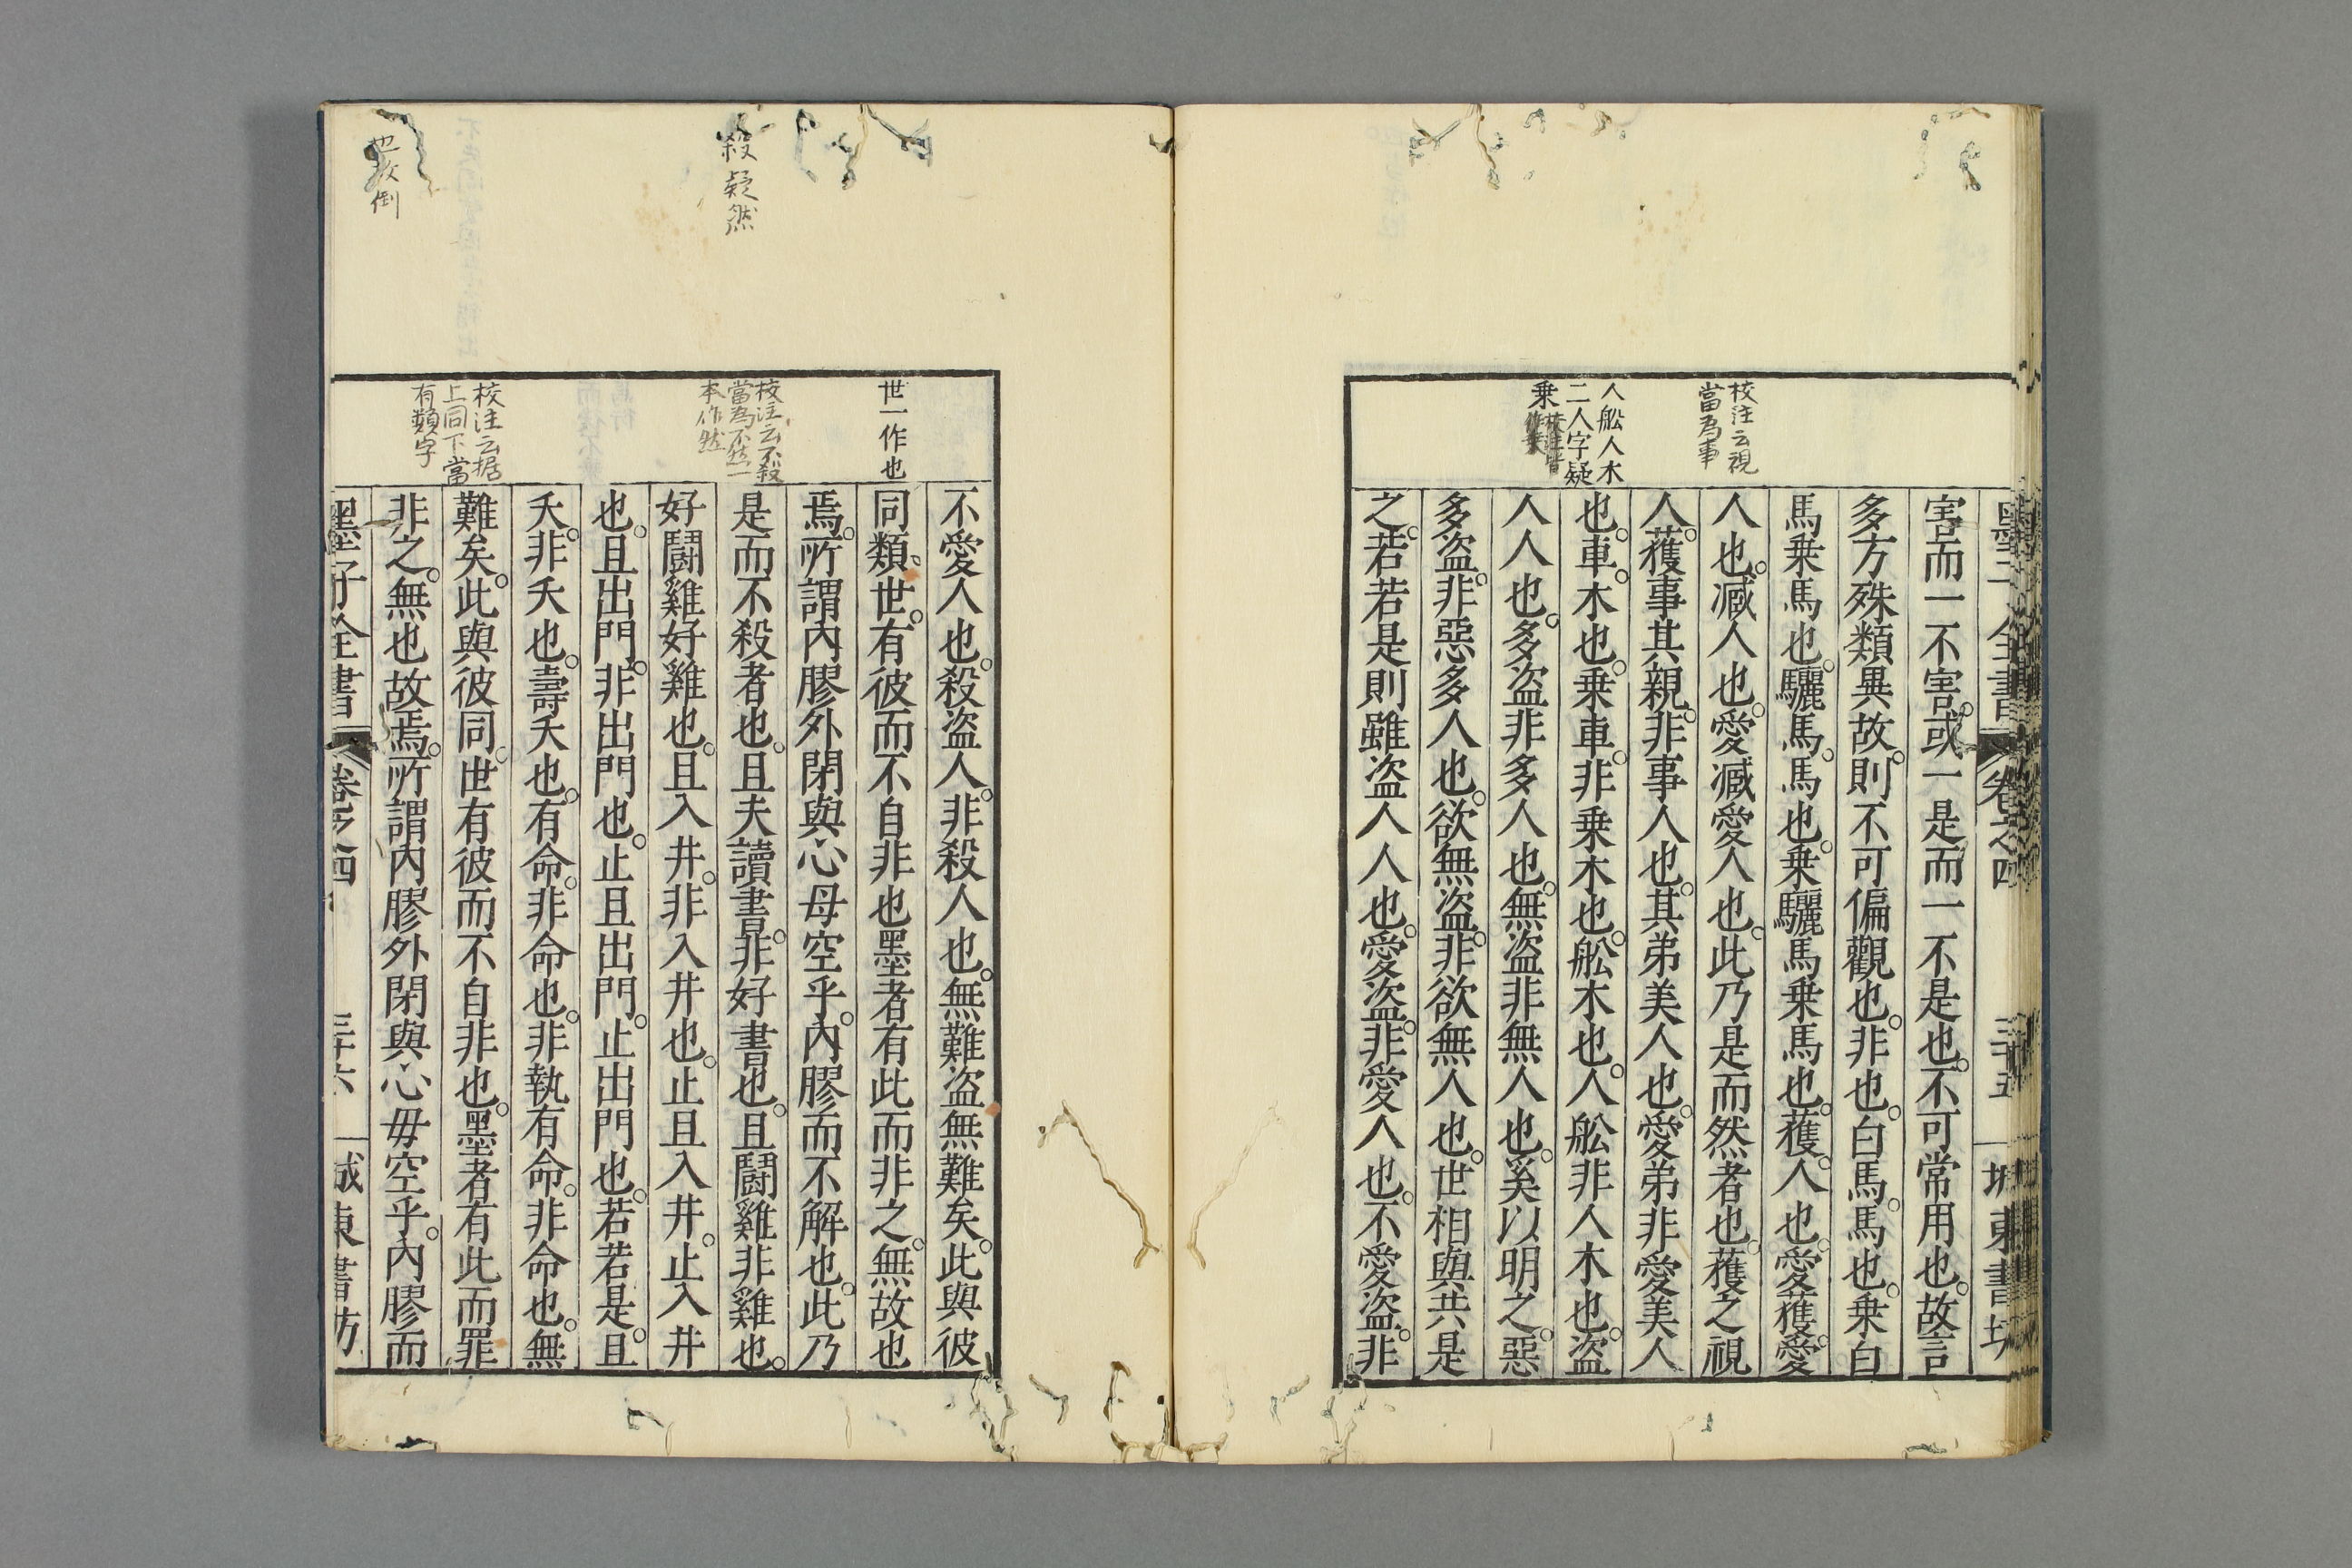 墨子全書
卷之四
三十五
城東書坊
校注云視
當為事
人舩人木
二人字疑
乗
害而一不害。或一是而一不是也。不可常用也。故言
多方殊類異故。則不可偏觀也。非也。白馬。馬也。乗白
馬乗馬也。驪馬。馬也。乗驪馬乗馬也。獲。人也。愛獲。愛
人也。臧人也。愛臧愛人也。此乃是而然者也。獲之視
人。獲事其親。非事人也。其弟美人也。愛弟非愛美人
也。車。木也。乗車。非乗木也。舩木也。人舩非人木也。盗
人人也。多盗非多人也。無盗非無人也。奚以明之。惡
多盗。非惡多人也。欲無盗。非欲無人也。世相與共是
之。若若是則雖盗人人也。愛盗。非愛人也。不愛盗。非
殺疑然
也故倒
世一作也
校注云不殺
當為不然一
本作然
校注云据
上同下當
有類字
不愛人也。殺盗人。非殺人也。無難盗無難矣。此與彼
同類。世。有彼而不自非也墨者有此而非之。無故也
焉。所謂内膠外閉與心母空乎。内膠而不解也。此乃
是而不殺者也。且夫讀書。非好書也。且鬪雞非雞也。
好鬪雞好雞也。且入井。非入井也。止且入井。止入井
也。且出門。非出門也。止且出門。止出門也。若若是。且
夭。非夭也。壽夭也。有命。非命也。非執有命。非命也。無
難矣。此與彼同。世有彼而不自非也。墨者有此而罪
非之。無也故焉。所謂内膠外閉與心毋空乎。内膠而
墨子全書
卷之四
三十六
城東書坊